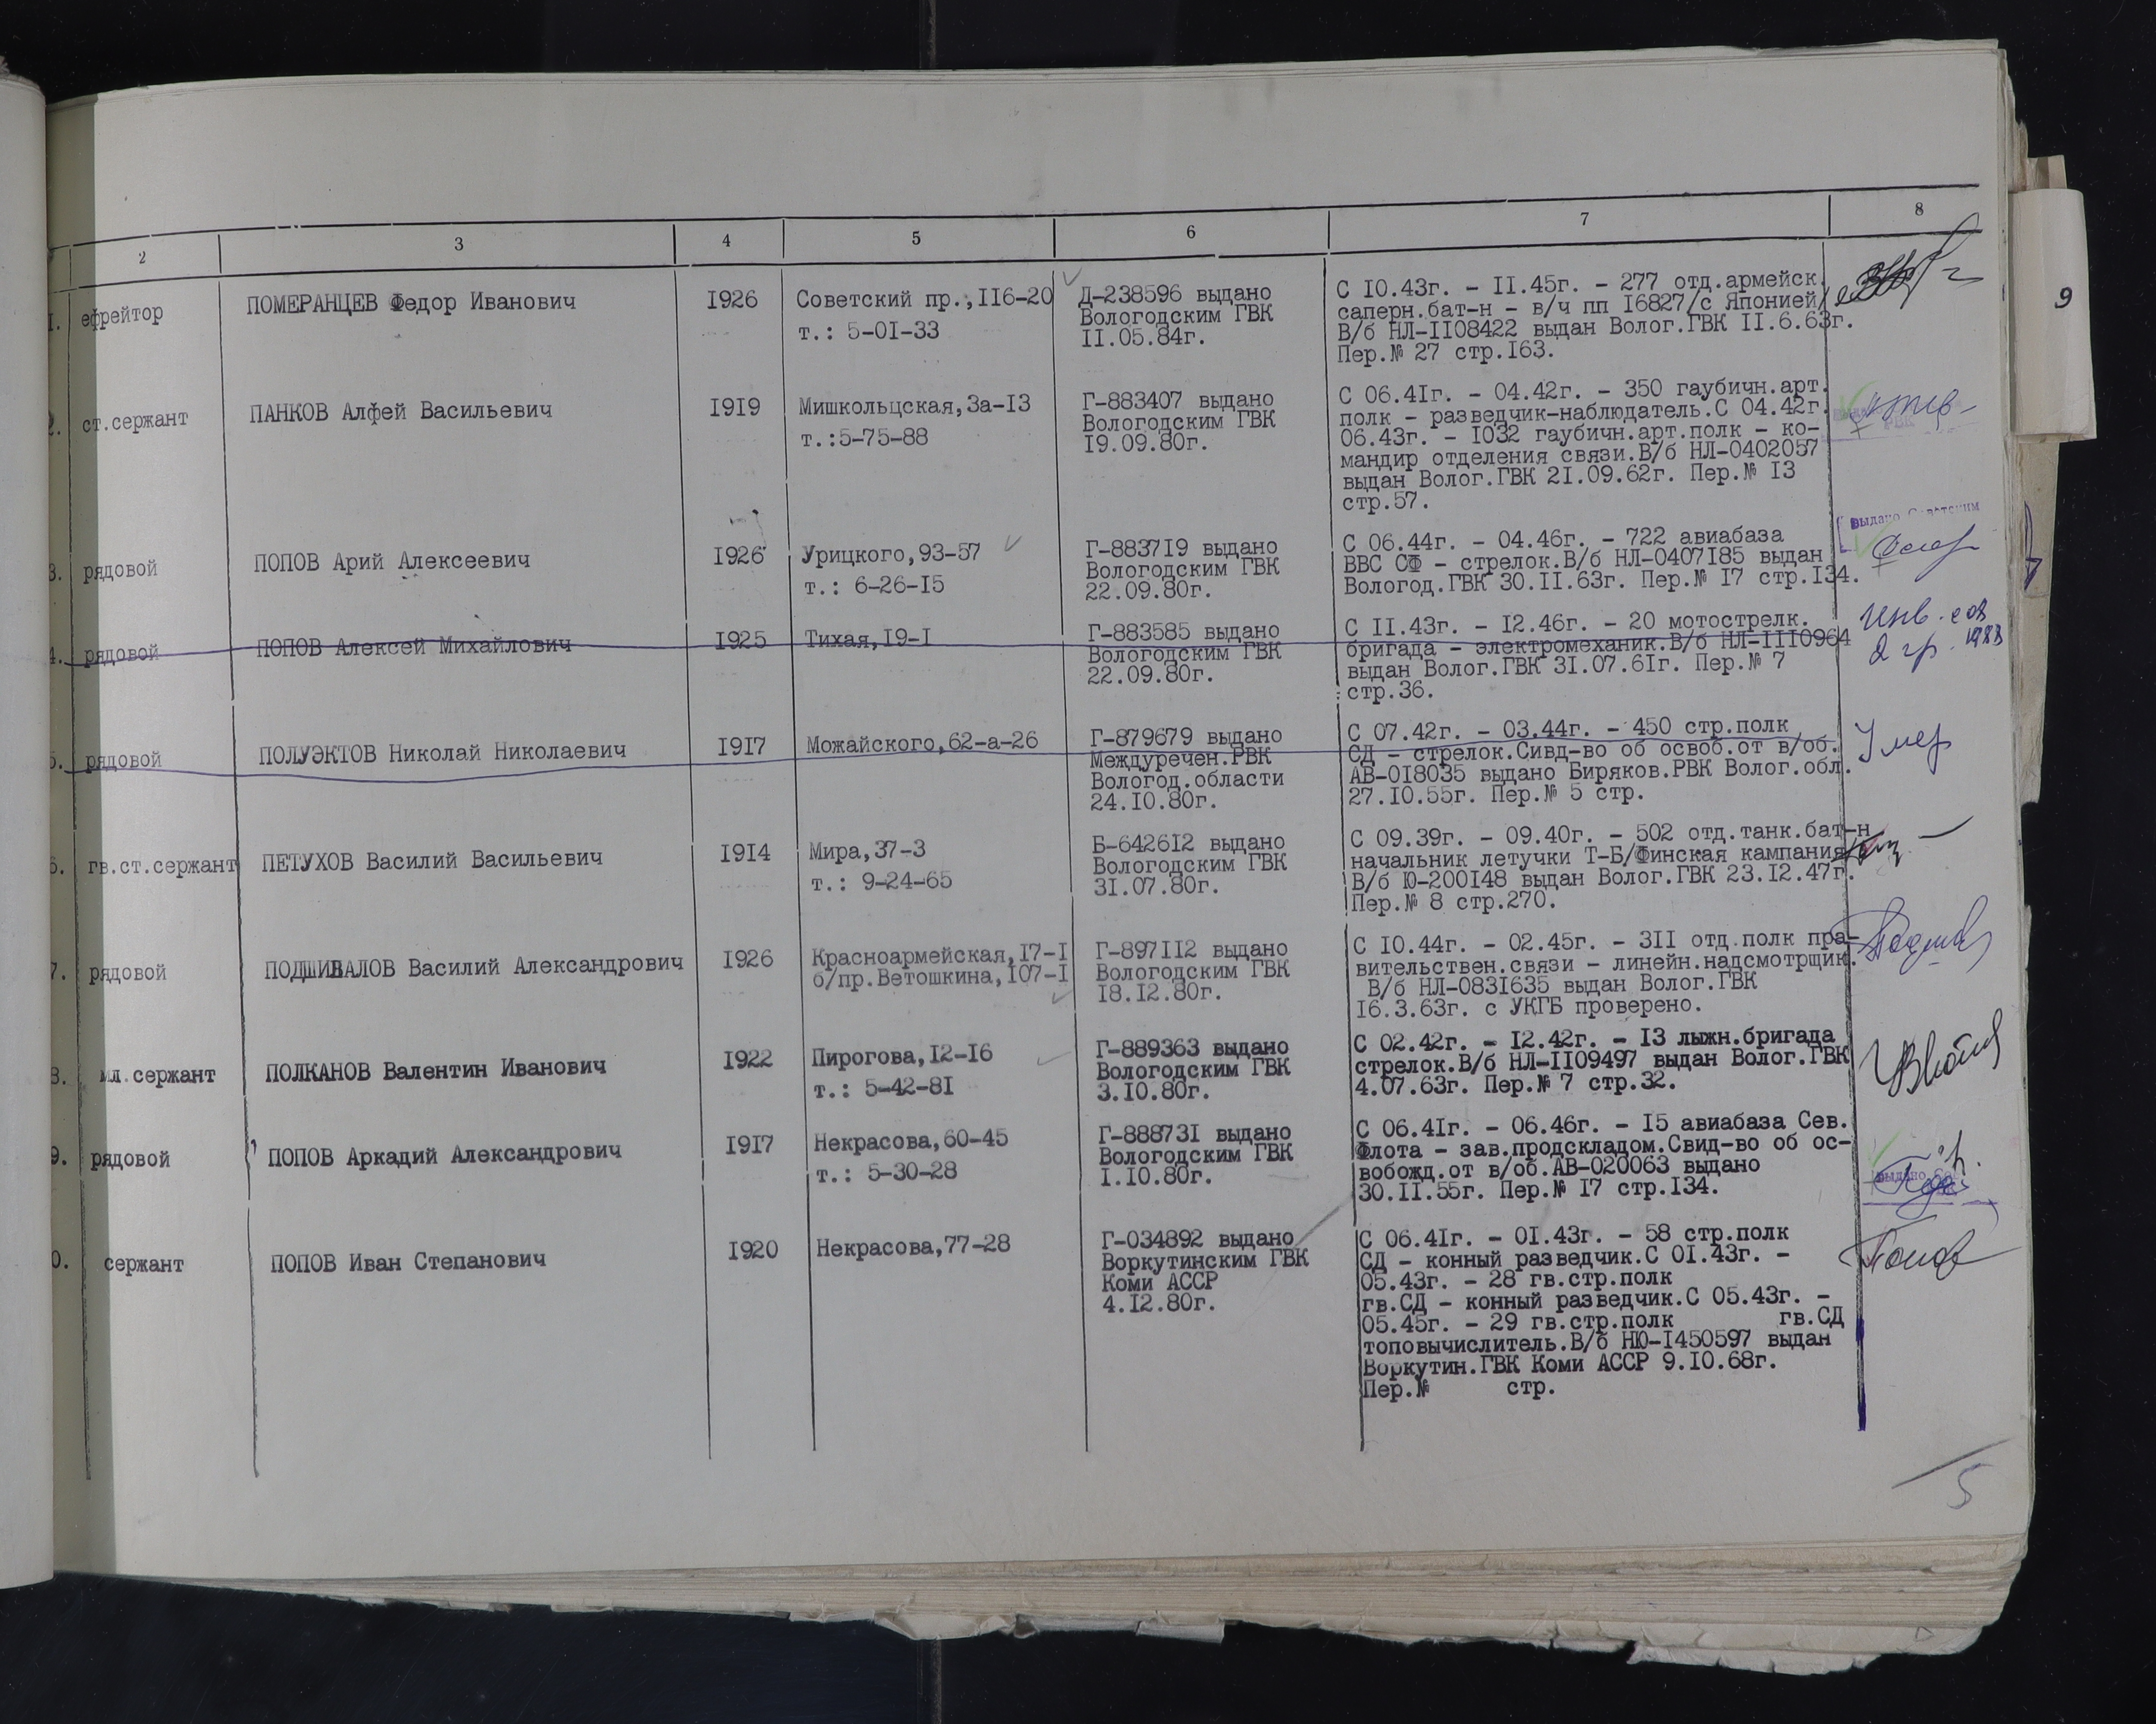 2 3 4 5 6 7 8
1. ефрейтор ПОМЕРАНЦЕВ Федор Иванович 1926 Советский пр.,116-20 Д-238596 выдано С 10.43г. - 11.45г. - 277 отд.армейск.
Вологодским ГВК саперн.бат-н - в/ч пп 16827/с Японией/
т.: 5-01-33 11.05.84г. В/б НЛ-1108422 выдан Волог.ГВК 11.6.63г.
Пер.№ 27 стр.163.
9
2. ст.сержант ПАНКОВ Алфей Васильевич 1919 Мишкольцская,3а-13 Г-883407 выдано С 06.41г. - 04.42г. - 350 гаубичн.арт.
Вологодским ГВК полк - разведчик-наблюдатель.С 04.42г.
т.:5-75-88 19.09.80г. 06.43г. - 1032 гаубичн.арт.полк - ко-
мандир отделения связи.В/б НЛ-0402057
выдан Волог.ГВК 21.09.62г. Пер.№ 13
стр.57.
выдано Советским
3. рядовой ПОПОВ Арий Алексеевич 1926 Урицкого,93-57 Г-883719 выдано С 06.44г. - 04.46г. - 722 авиабаза
Вологодским ГВК ВВС СФ - стрелок.В/б НЛ-0407185 выдан
т.: 6-26-15 22.09.80г. Вологод.ГВК 30.11.63г. Пер.№ 17 стр.134.
4. рядовой ПОПОВ Алексей Михайлович 1925 Тихая,19-1 Г-883585 выдано С 11.43г. - 12.46г. - 20 мотострелк. Инв. сов
Вологодским ГВК бригада - электромеханик.В/б НЛ-1110964 2 гр. 1988
22.09.80г. выдан Волог.ГВК 31.07.61г. Пер.№ 7
стр.36.
5. рядовой ПОЛУЭКТОВ Николай Николаевич 1917 Можайского,62-а-26 Г-879679 выдано С 07.42г. - 03.44г. - 450 стр.полк Умер
Междуречен.РВК СД - стрелок.Сивд-во об освоб.от в/об.
Вологод.области АВ-018035 выдано Биряков.РВК Волог.обл.
24.10.80г. 27.10.55г. Пер.№ 5 стр.
6. гв.ст.сержант ПЕТУХОВ Василий Васильевич 1914 Мира,37-3 Б-642612 выдано С 09.39г. - 09.40г. - 502 отд.танк.бат-н
Вологодским ГВК начальник летучки Т-Б/Финская кампания/
т.: 9-24-65 31.07.80г. В/б Ю-200148 выдан Волог.ГВК 23.12.47г.
Пер.№ 8 стр.270.
7. рядовой ПОДШИВАЛОВ Василий Александрович 1926 Красноармейская,17-1 Г-897112 выдано С 10.44г. - 02.45г. - 311 отд.полк пра-
б/пр.Ветошкина,107-1 Вологодским ГВК вительствен.связи - линейн.надсмотрщик.
18.12.80г. В/б НЛ-0831635 выдан Волог.ГВК
16.3.63г. с УКГБ проверено.
8. мл.сержант ПОЛКАНОВ Валентин Иванович 1922 Пирогова,12-16 Г-889363 выдано С 02.42г. - 12.42г. - 13 лыжн.бригада
Вологодским ГВК стрелок.В/б НЛ-1109497 выдан Волог.ГВК
т.: 5-42-81 3.10.80г. 4.07.63г. Пер.№ 7 стр.32.
9. рядовой ПОПОВ Аркадий Александрович 1917 Некрасова,60-45 Г-888731 выдано С 06.41г. - 06.46г. - 15 авиабаза Сев.
Вологодским ГВК Флота - зав.продскладом.Свид-во об ос-
т.: 5-30-28 1.10.80г. вобожд.от в/об.АВ-020063 выдано
30.11.55г. Пер.№ 17 стр.134.
0. сержант ПОПОВ Иван Степанович 1920 Некрасова,77-28 Г-034892 выдано С 06.41г. - 01.43г. - 58 стр.полк Попов
Воркутинским ГВК СД - конный разведчик.С 01.43г. -
Коми АССР 05.43г. - 28 гв.стр.полк
4.12.80г. гв.СД - конный разведчик.С 05.43г. -
05.45г. - 29 гв.стр.полк гв.СД
топовычислитель.В/б НЮ-1450597 выдан
Воркутин.ГВК Коми АССР 9.10.68г.
Пер.№ стр.
5